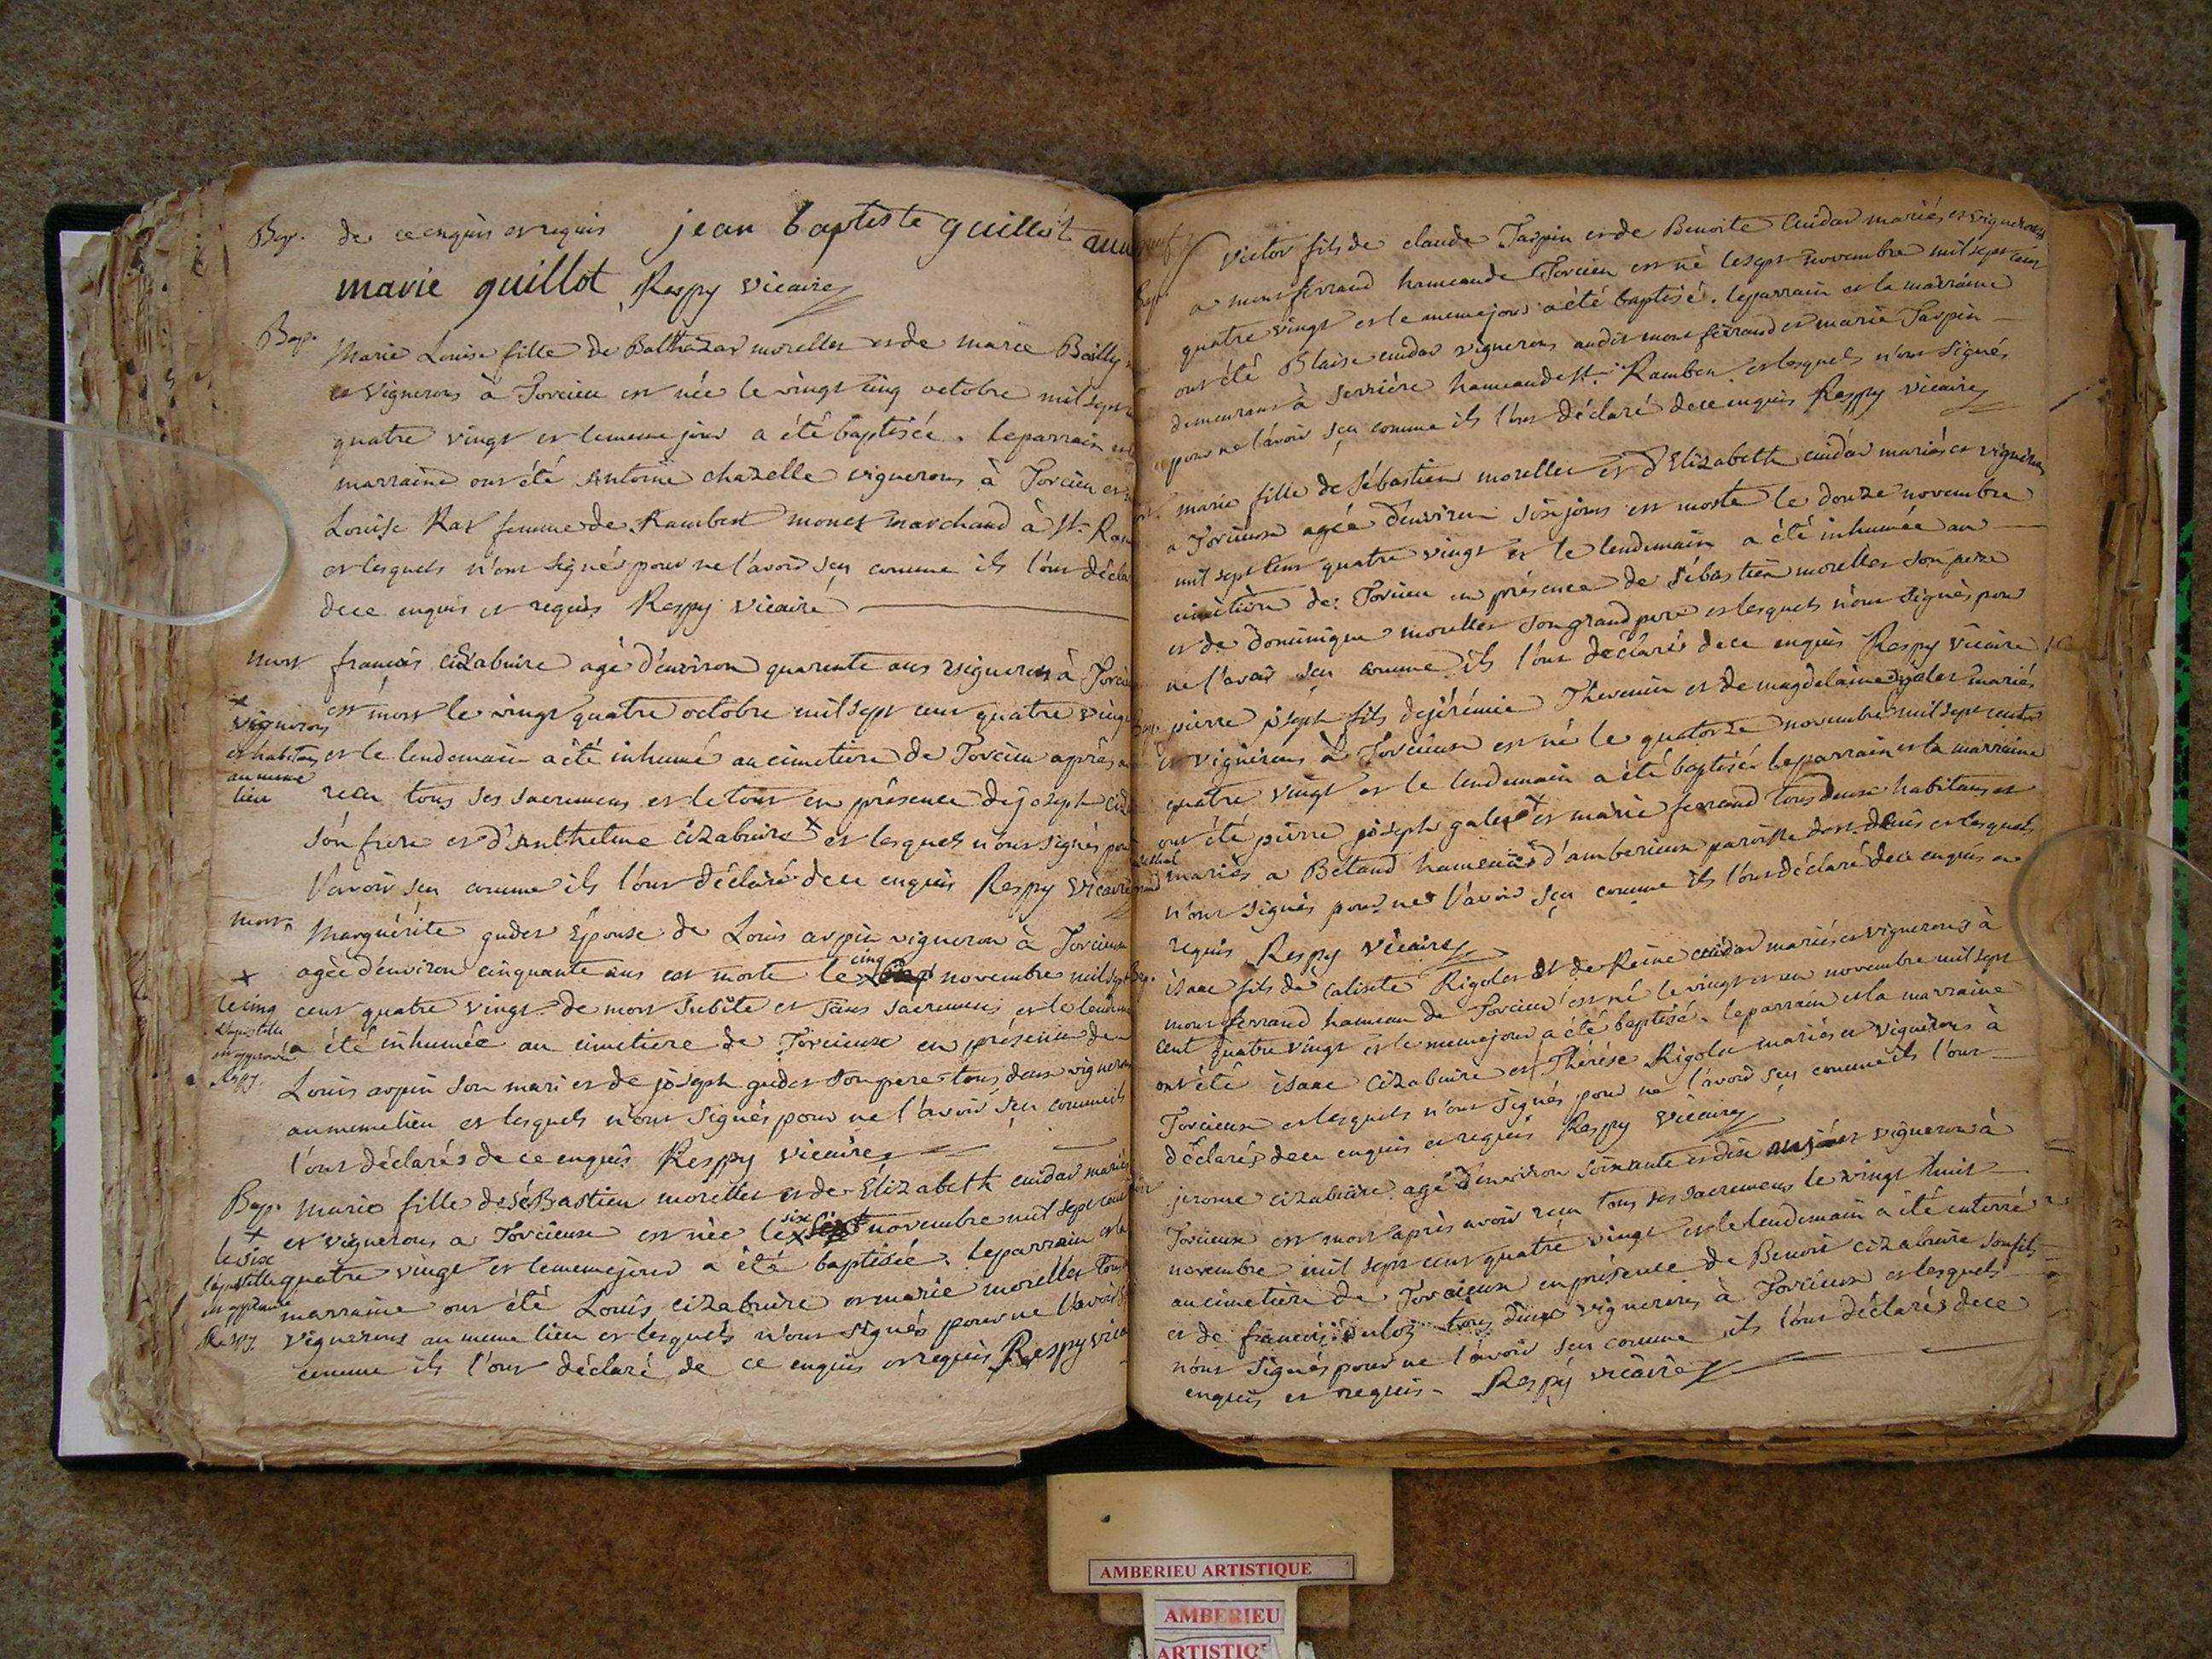 Bap. de ce enquis et requis jean baptiste guillot
marie guillot Respy vicaire
Bap. Marie Louise fille de Balthazar morellet et de marie Bailly
et vignerons à Torcieu est née le vingt cinq octobre mil sept
quatre vingt et le meme jour a été baptisée. le parrain et
marraine ont été Antoine chazelle vigneron à Torcieu et
Louise Rav femme de Rambert monet marchand à st. Ram
et lesquels n'ont signés pour ne l'avoir sçu comme ils l'ont décla
de ce enquis et requis Respy vicaire
mort françois cizabuire agé d'environ quarente ans vigneron à Torcieu
est mort le vingt quatre octobre mil sept cent quatre vingt
et le lendemain a été inhumé au cimetiere de Torcieu après a
recu tous ses sacremens et le tout en présence de joseph ciz
son frere et d'Anthelme cizabuire + et lesquels n'ont signés pour
l'avoir sçu comme ils l'ont déclaré de ce enquis Respy vicaire
+ vignerons
et habitans
au meme
lieu
mort Marguérite gudet Epouse de Louis arpin vigneron à Torcieux
agée d'environ cinquante ans est morte le x cinq novembre mil sept
cent quatre vingt de mort subite et sans sacremens et le lendem
a été inhumée au cimetiere de Torcieux en présence de
Louis arpin son mari et de joseph gudet son pere tous deux vignerons
au meme lieu et lesquels n'ont signés pour ne l'avoir sçu comme ils
l'ont déclarés de ce enquis Respy vicaire
+
le cinq
l'apostille
approuvée
Respy.
Bap. Marie fille de séBastien morellet et de Elizabeth cuidar mariés
et vignerons a Torcieux est née le x six novembre mil sept cent
quatre vingt et le meme jour a été baptisée. le parrain et la
marraine ont été Louis cizabuire et marie morellet tous
vignerons au meme lieu et lesquels n'ont signés pour ne l'avoir s
comme ils l'ont déclaré de ce enquis et requis Respy vica
+
le six
l'apostille
approuvée
Respy.
victor fils de claude Tarpin et de Benoite Cuidar mariés et vignerons
a montferrand hameau de Torcieu est né le sept novembre mil sept cent
quatre vingt et le meme jour a été baptisé. le parrain et la marraine
ont été Blaise cuidar vigneron audit montferrand et marie Tarpin
demeurant à serriére hameau de st. Rambert et lesquels n'ont signés
pour ne l'avoir sçu comme ils l'ont déclaré de ce enquis Respy vicaire
marie fille de sébastien morellet et d'Elizabeth cuidar mariés et vignerons
a Torcieux agée d'environ six jours est morte le douze novembre
mil sept cent quatre vingt et le lendemain a été inhumée au
cimetière de Torcieu en présence de sébastien morellet son pere
et de dominique morellet son grand pere et lesquels n'ont signés pour
ne l'avoir sçu comme ils l'ont déclarés de ce enquis Respy vicaire
pierre joseph fils de jérémie Thevenin et de magdelaine galet mariés
et vignerons à Torcieux est né le quatorze novembre mil sept cent
quatre vingt et le lendemain a été baptisé le parrain et la marraine
ont été pierre joseph galet + et marie ferrand tous deux habitans et
mariés a Betand hameau d'amberieux paroisse de st. denis et lesquels
n'ont signés pour ne l'avoir sçu comme ils l'ont déclaré de ce enquis et
requis Respy vicaire
isaac fils de Calixte Rigolet et de Reine cuidar mariés et vignerons à
montferrand hameau de Torcieu est né le vingt et un novembre mil sept
cent quatre vingt et le meme jour a été baptisé. le parrain et la marraine
ont été isaac cizabuire et Thérése Rigolet mariés et vignerons à
Torcieux et lesquels n'ont signés pour ne l'avoir sçu comme ils l'ont
déclarés de ce enquis et requis Respy vicaire
jerome cizabuire agé d'environ soixante et dix vigneron à
Torcieux est mort après avoir recu tous ses sacremens le vingt huit
novembre mil sept cent quatre vingt et le lendemain a été enterré
au cimetière de Torcieux en présence de Benoit cizabuire son fils
et de francois tous deux vignerons à Torcieux et lesquels
n'ont signés pour ne l'avoir sçu comme ils l'ont déclarés de ce
enquis et requis - Respy vicaire
AMBERIEU ARTISTIQUE
AMBERIEU
ARTISTIQ